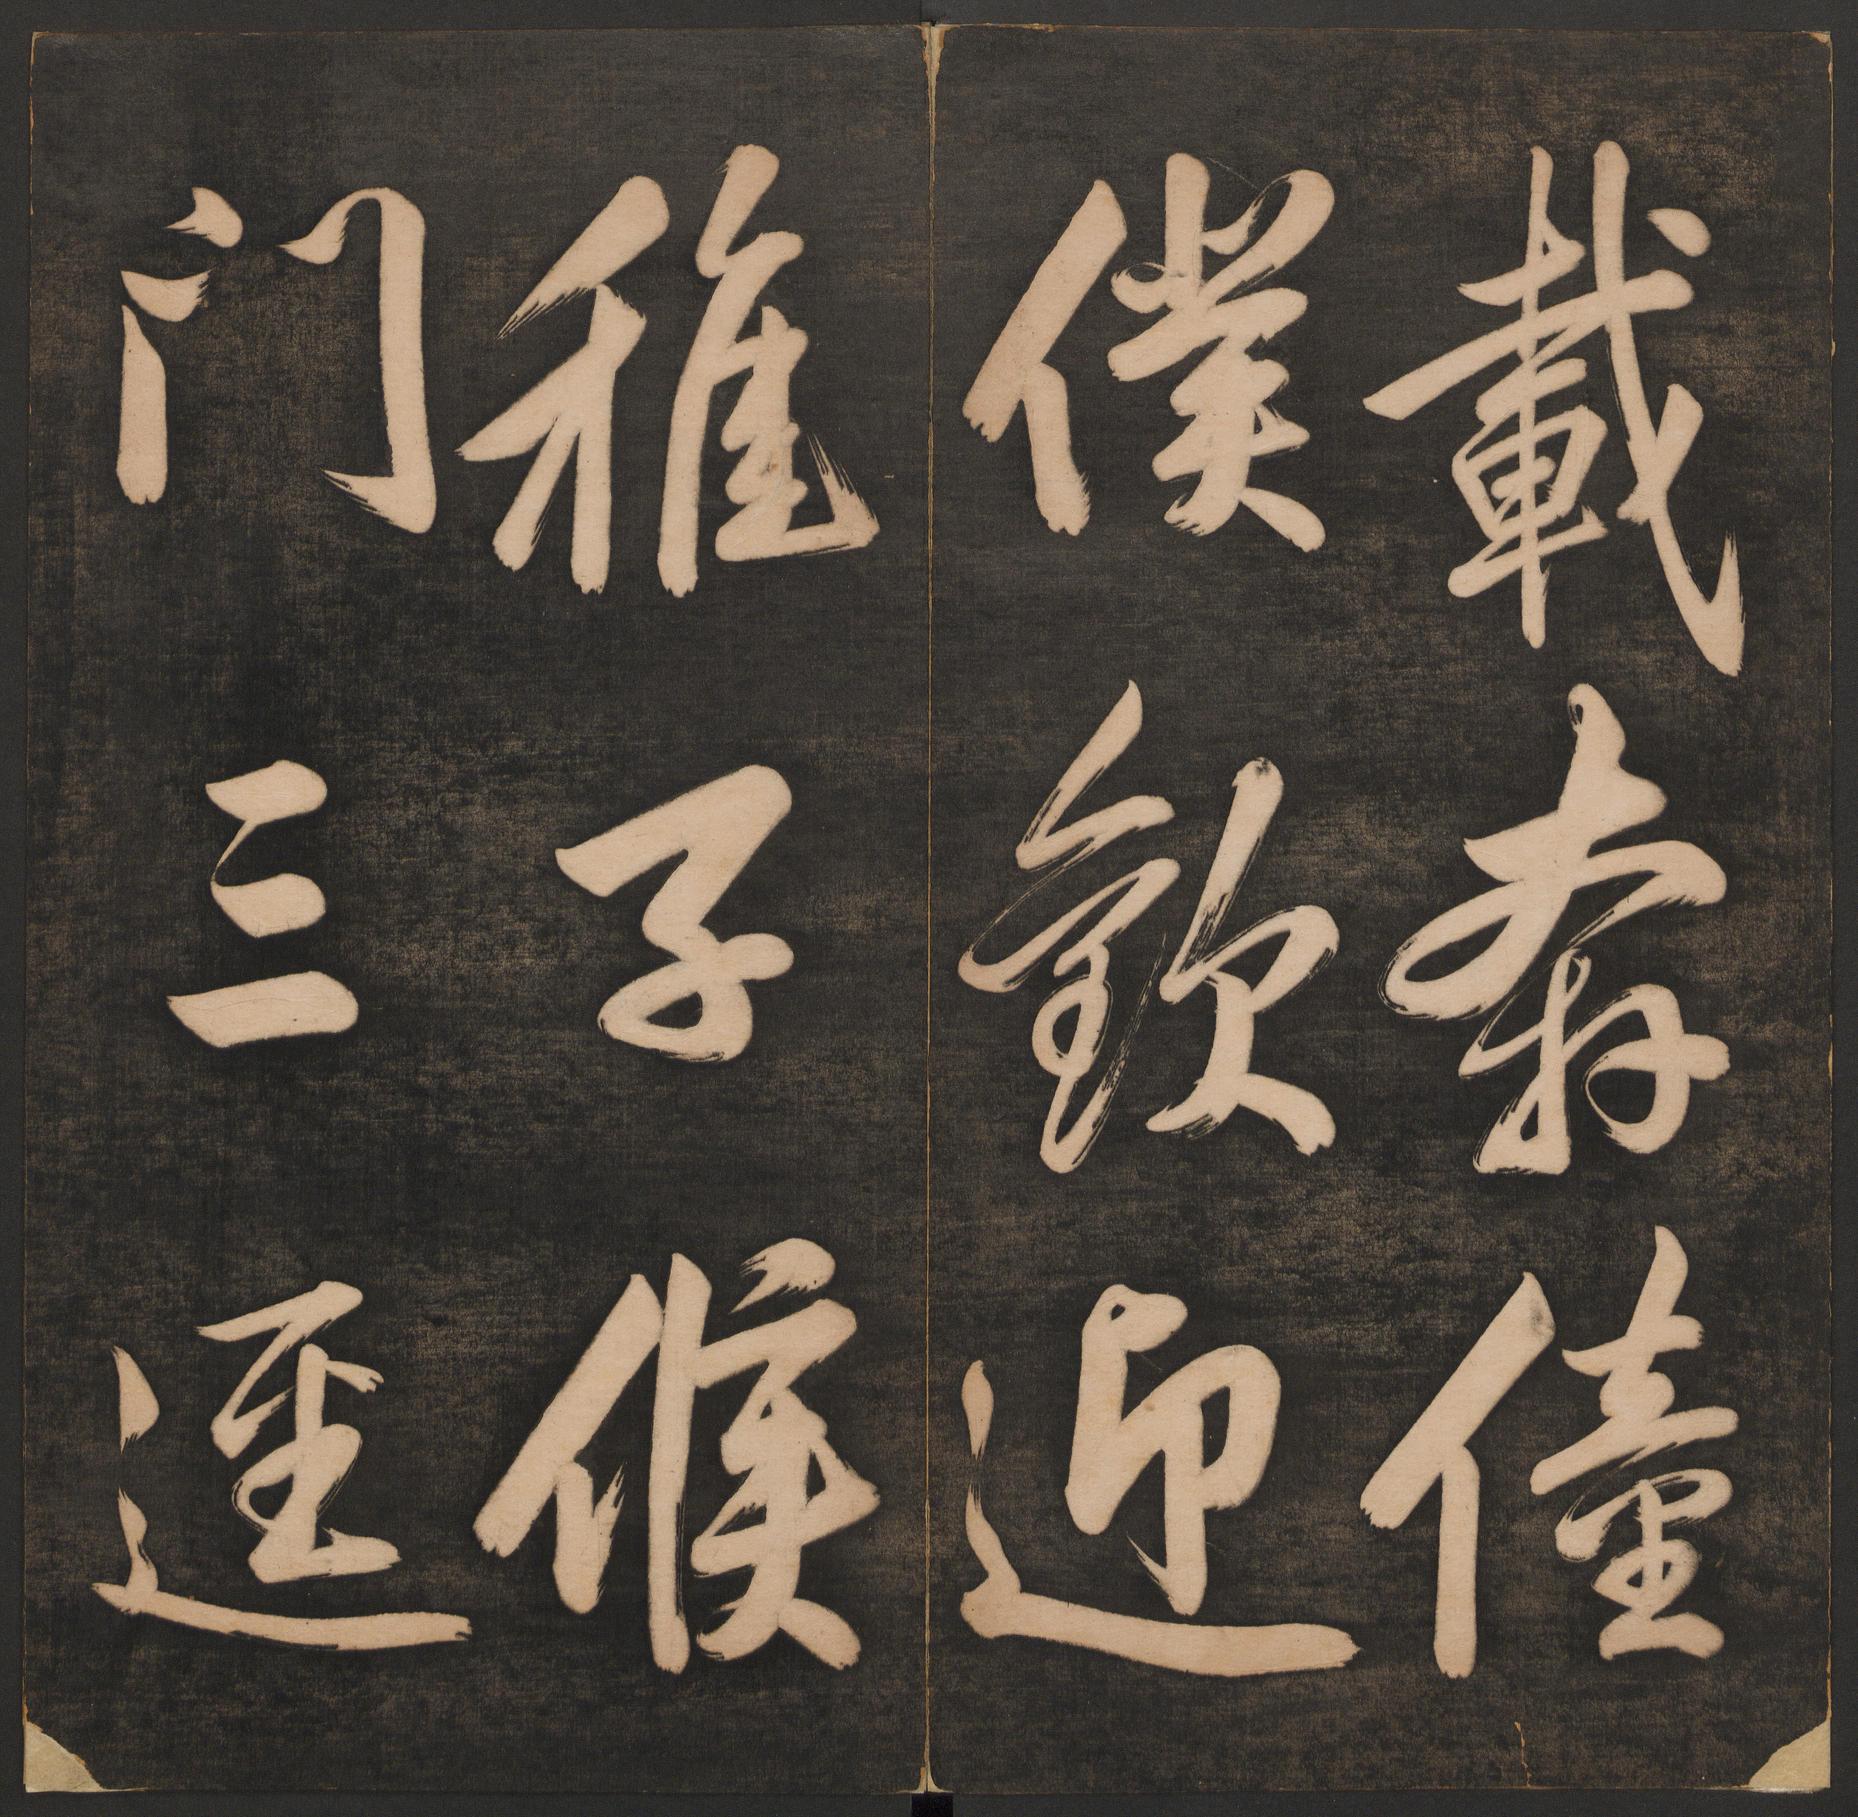 載奔僮
僕歡迎
稚子候
門三逕